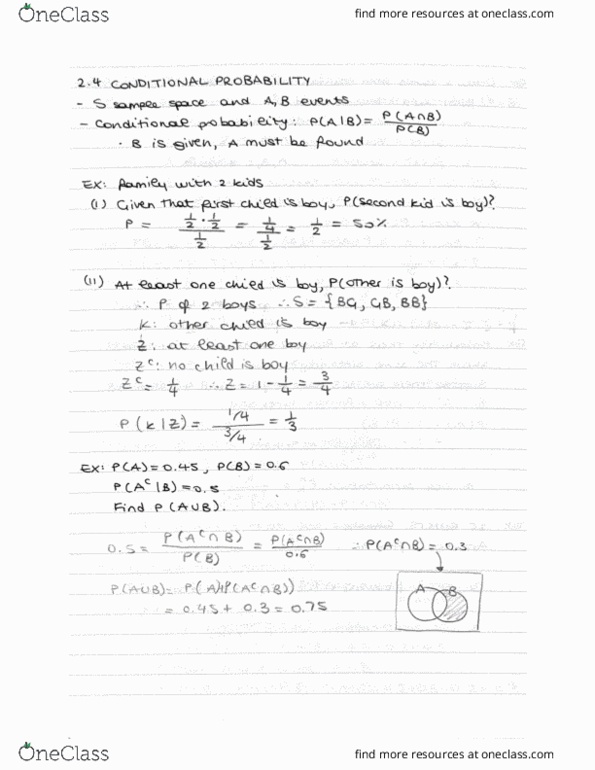 OneClass
find more resources at oneclass.com
2.4 CONDITIONAL PROBABILITY
- S sample space and A, B events
- Conditional probability: P(A|B) = P(A∩B) / P(B)
· B is given, A must be found
EX: Family with 2 kids
(i) Given that first child is boy, P(second kid is boy)?
P = (1/2 · 1/2) / (1/2) = (1/4) / (1/2) = 1/2 = 50%
(ii) At least one child is boy, P(other is boy)?
∴ P of 2 boys ∴ S = {BG, GB, BB}
K: other child is boy
Z: at least one boy
Zᶜ: no child is boy
Zᶜ = 1/4 ∴ Z = 1 - 1/4 = 3/4
P(K|Z) = (1/4) / (3/4) = 1/3
EX: P(A) = 0.45, P(B) = 0.6
P(Aᶜ|B) = 0.5
Find P(A∪B).
0.5 = P(Aᶜ∩B) / P(B) = P(Aᶜ∩B) / 0.6 ∴ P(Aᶜ∩B) = 0.3
P(A∪B) = P(A)+P(Aᶜ∩B))
= 0.45 + 0.3 = 0.75
A B
OneClass
find more resources at oneclass.com